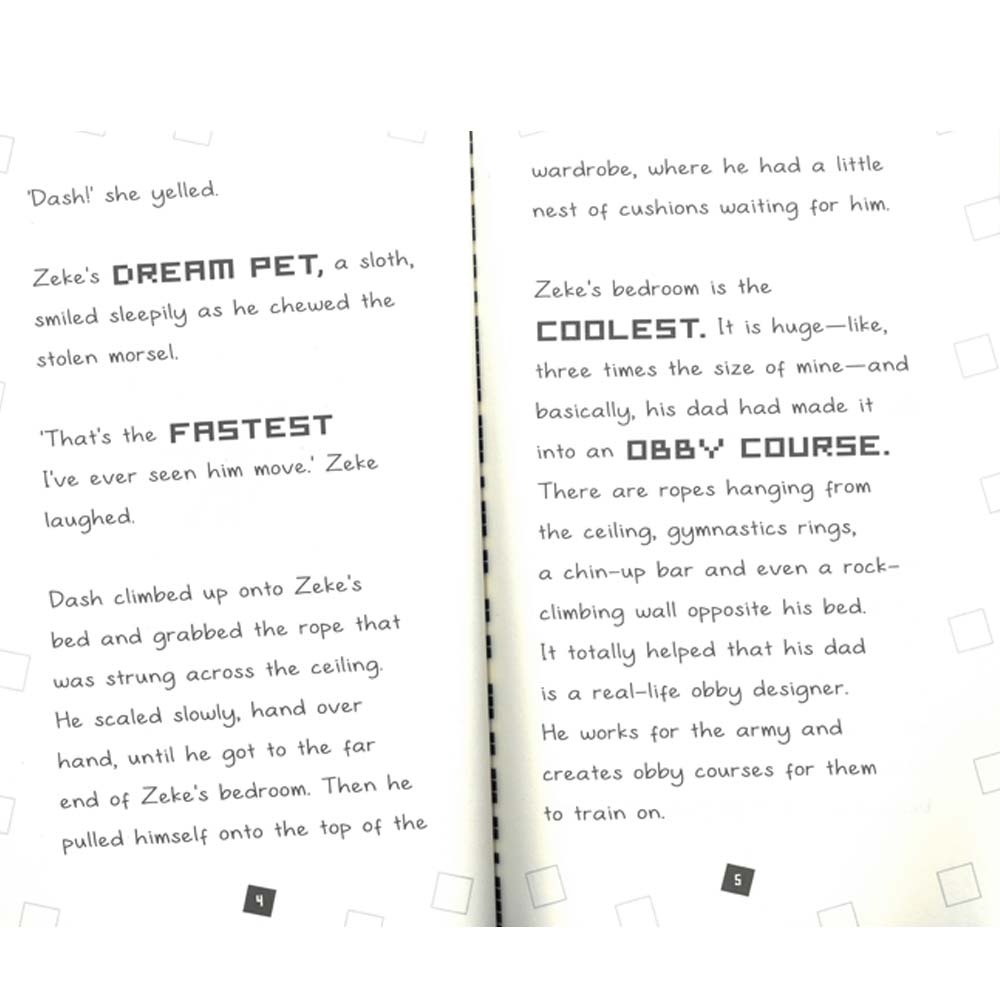 'Dash!' she yelled.
Zeke's DREAM PET, a sloth,
smiled sleepily as he chewed the
stolen morsel.
'That's the FASTEST
I've ever seen him move.' Zeke
laughed.
Dash climbed up onto Zeke's
bed and grabbed the rope that
was strung across the ceiling.
He scaled slowly, hand over
hand, until he got to the far
end of Zeke's bedroom. Then he
pulled himself onto the top of the
4
wardrobe, where he had a little
nest of cushions waiting for him.
Zeke's bedroom is the
COOLEST. It is huge—like,
three times the size of mine—and
basically, his dad had made it
into an OBBY COURSE.
There are ropes hanging from
the ceiling, gymnastics rings,
a chin-up bar and even a rock-
climbing wall opposite his bed.
It totally helped that his dad
is a real-life obby designer.
He works for the army and
creates obby courses for them
to train on.
5